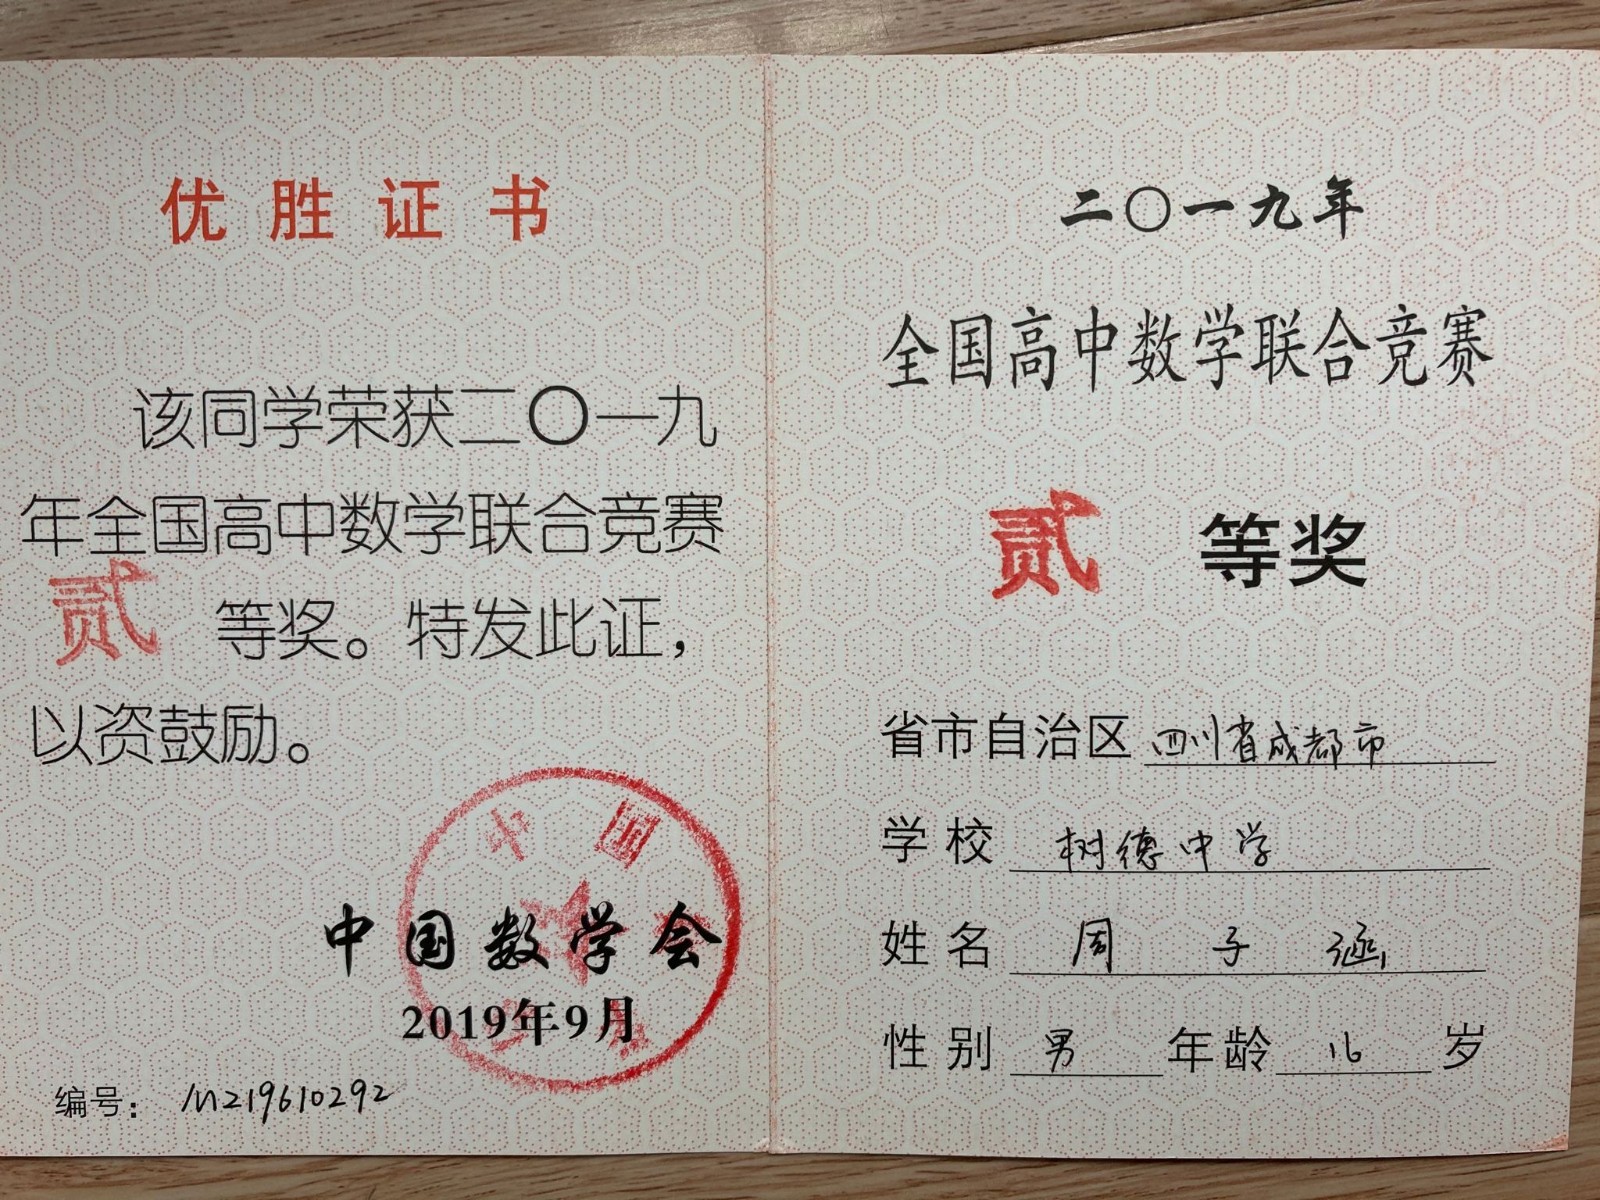 优胜证书
该同学荣获二〇一九
年全国高中数学联合竞赛
贰 等奖。特发此证，
以资鼓励。
中国数学会
2019年9月
编号：M219610292
二〇一九年
全国高中数学联合竞赛
贰 等奖
省市自治区 四川省成都市
学校 树德中学
姓名 周子涵
性别 男 年龄 16 岁